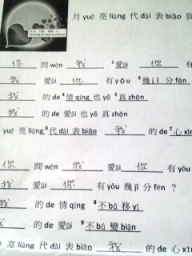 月 yuè 亮 liàng 代 dài 表 biǎo 我
你 問 wèn 我 愛ài 你 有
愛ài 你 有 yǒu 幾jǐ 分 fēn
我 的 de 情 qíng 也 yě 真 zhēn
我 的 de 愛 ài 也 yě 真 zhēn
yuè 亮 liàng 代 dài 表 biǎo 我 的 de 心 xīn
你 問 wèn 我 愛ài 你 有
我 愛ài 你 有 yǒu 幾 jǐ 分 fēn ？
我 的 de 情 qíng 不 bù 移 yí
我 的 de 愛ài 不 bù 變 biàn
亮 liàng 代 dài 表 biǎo 我 的 de 心 xīn